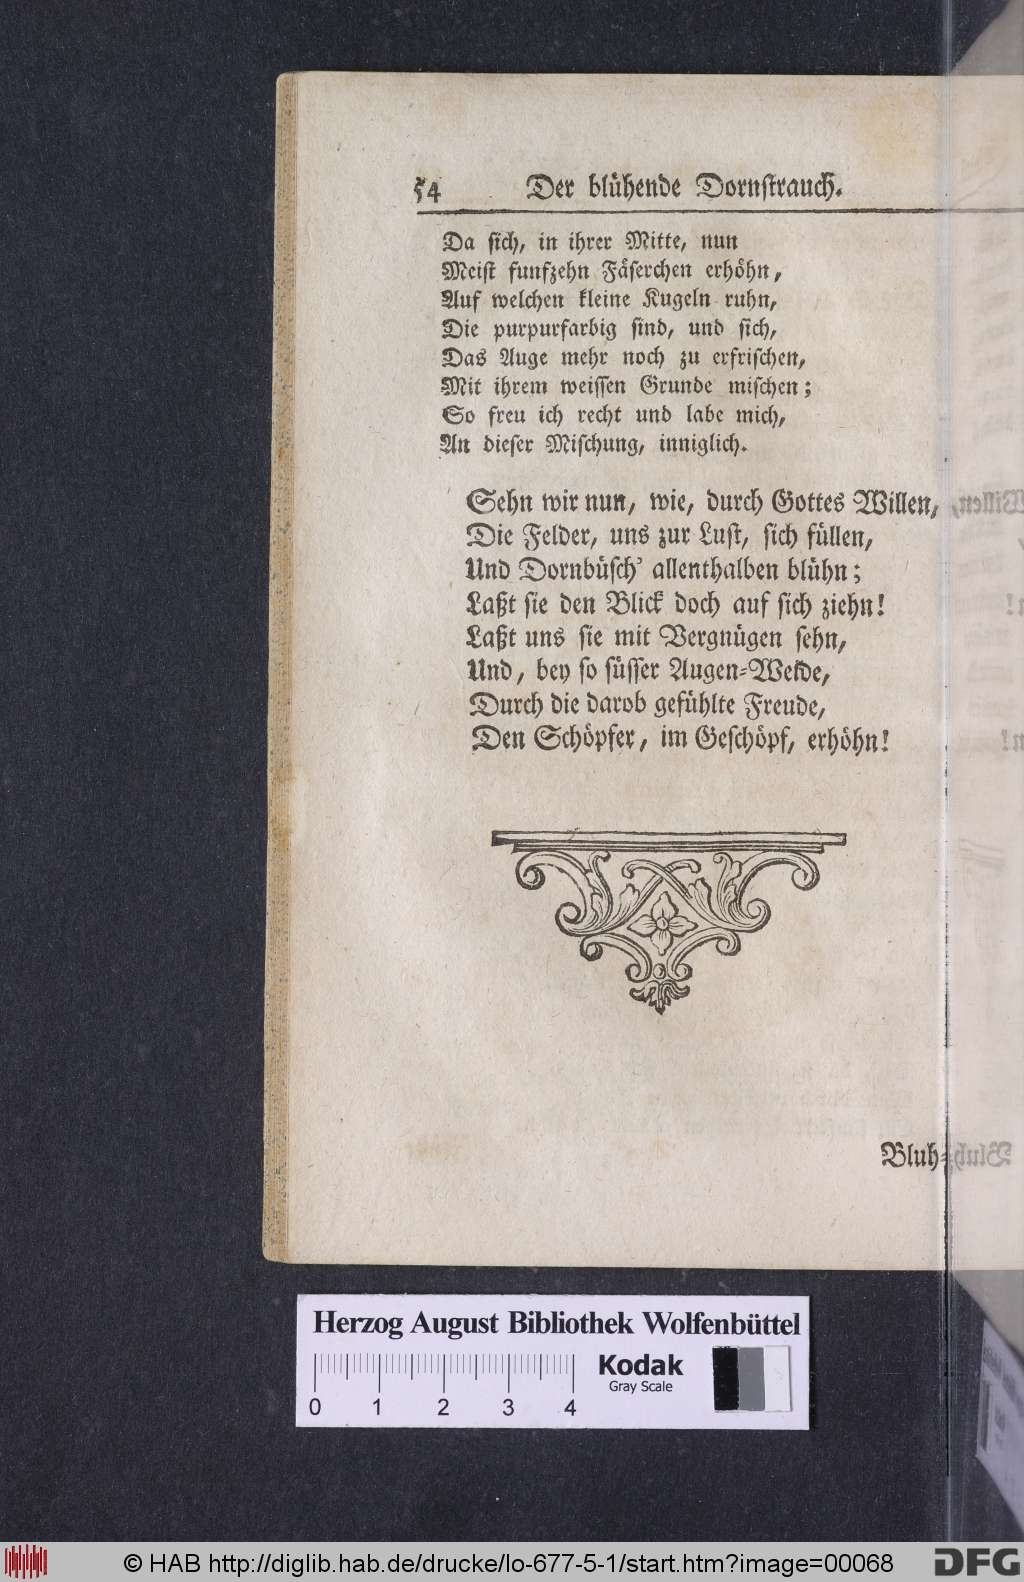 54 Der blühende Dornstrauch.
Da sich, in ihrer Mitte, nun
Meist funfzehn Fäserchen erhöhn,
Auf welchen kleine Kugeln ruhn,
Die purpurfarbig sind, und sich,
Das Auge mehr noch zu erfrischen,
Mit ihrem weissen Grunde mischen;
So freu ich recht und labe mich,
An dieser Mischung, inniglich.
Sehn wir nun, wie, durch Gottes Willen,
Die Felder, uns zur Lust, sich füllen,
Und Dornbüsch' allenthalben blühn;
Laßt sie den Blick doch auf sich ziehn!
Laßt uns sie mit Vergnügen sehn,
Und, bey so süsser Augen-Weide,
Durch die darob gefühlte Freude,
Den Schöpfer, im Geschöpf, erhöhn!
Bluh-
Herzog August Bibliothek Wolfenbüttel
Kodak
Gray Scale
0 1 2 3 4
© HAB http://diglib.hab.de/drucke/lo-677-5-1/start.htm?image=00068
DFG